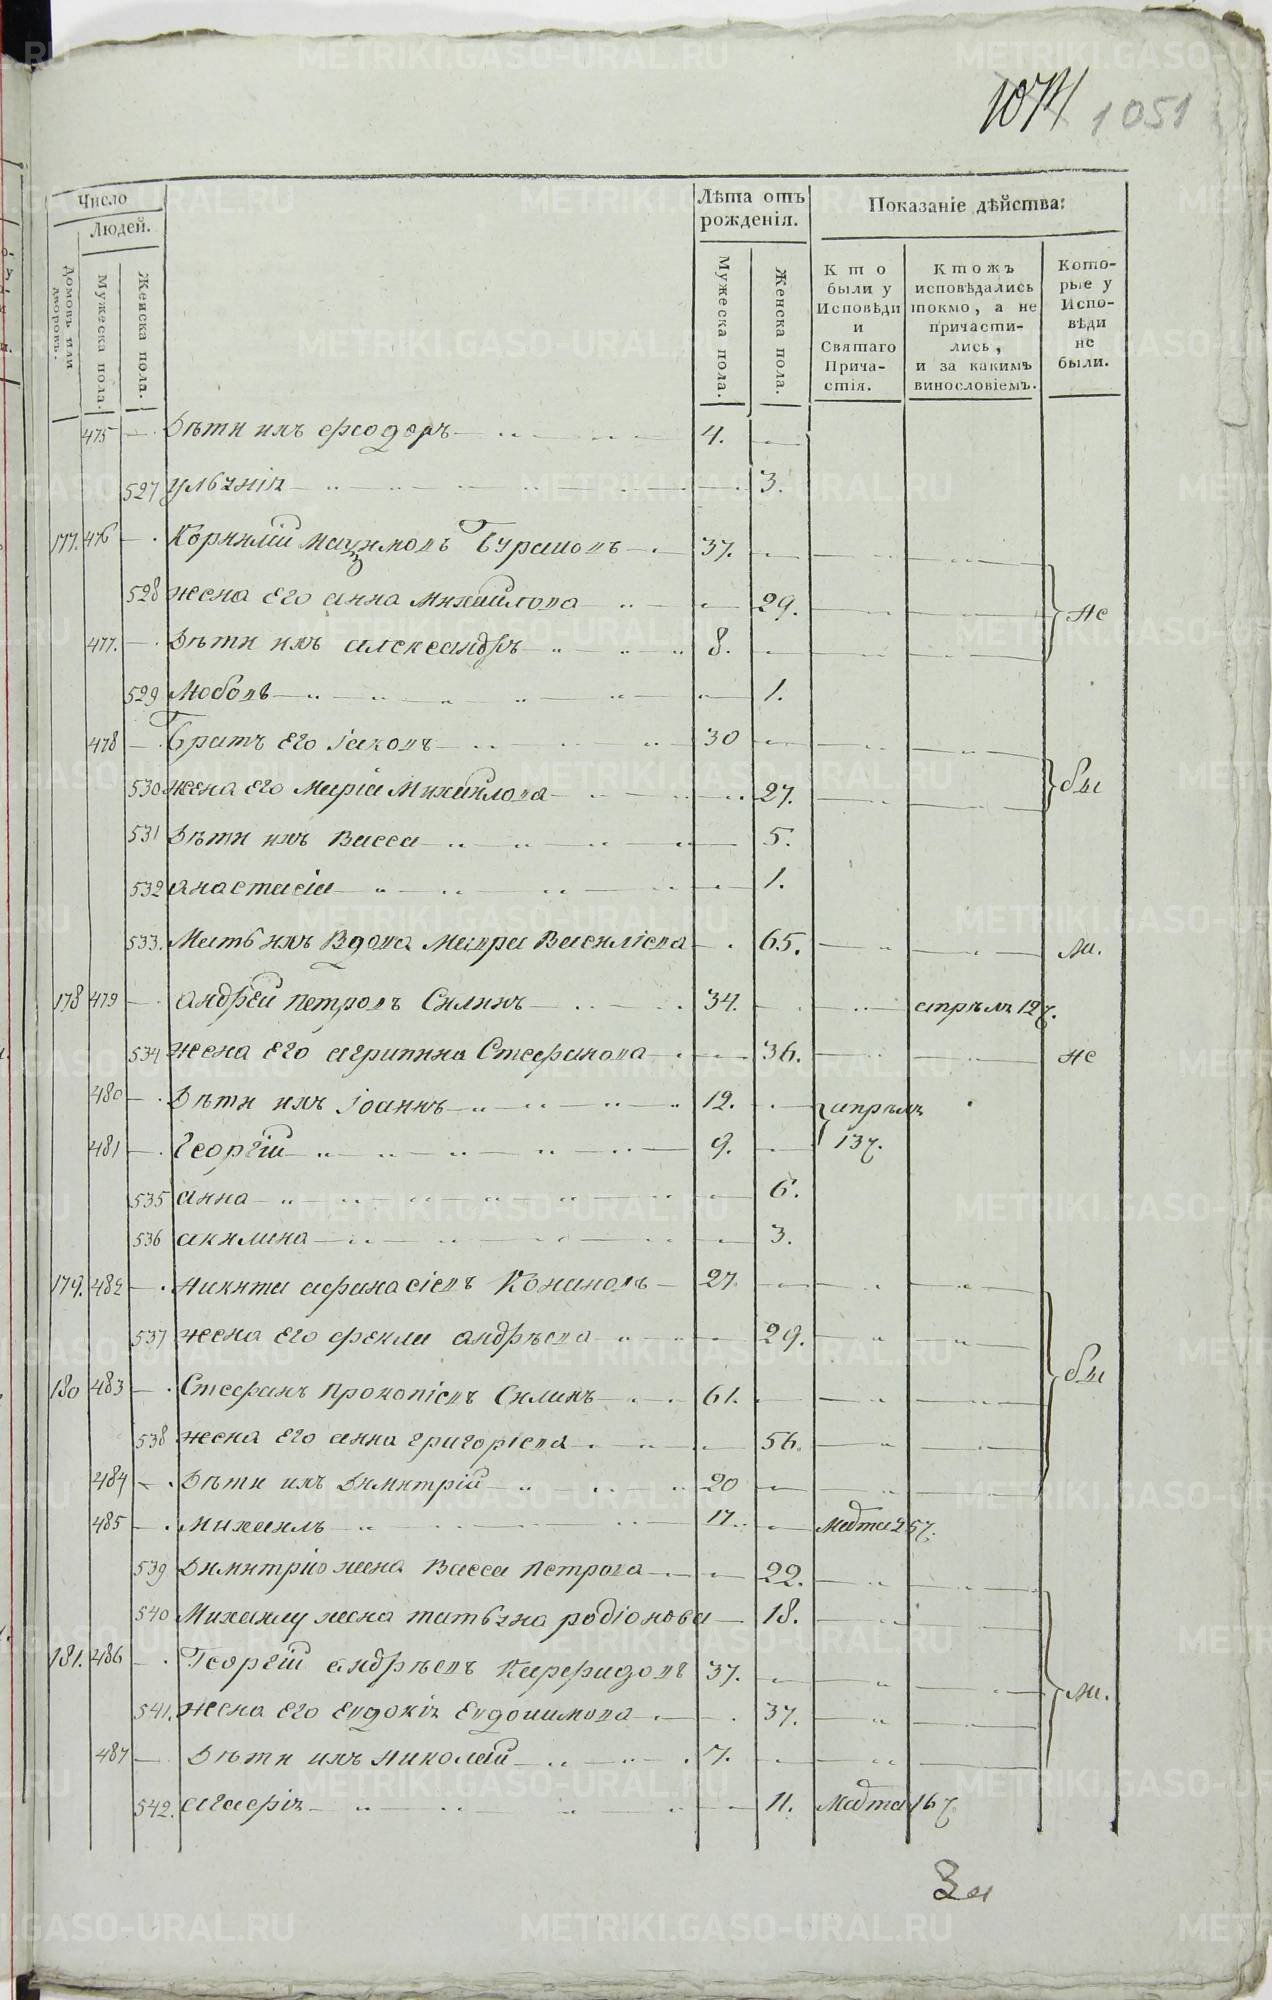 1074 1051
Число
Людей.
Домовъ или дворовъ.
Мужеска пола.
Женска пола.
Лѣта отъ рожденія.
Мужеска пола.
Женска пола.
Показаніе дѣйства:
Кто были у Исповѣди и Святаго Причастія.
Ктожъ исповѣдались токмо, а не причастились, и за какимъ винословіемъ.
Которые у Исповѣди не были.
475 — Дѣти ихъ Ѳеодоръ 4.
527 Ульянія 3.
177. 476 — Корнилій Максимовъ 37.
528 жена его Анна Михаилова 29. не
477. — Дѣти ихъ Александръ 8.
529 Любовь 1.
478 — Братъ его Іаковъ 30
530 жена его Марія Михаилова 27. бы
531 Дѣти ихъ Васса 5.
532 Анастасія 1.
533. Мать ихъ вдова Мавра Василіева 65. ли.
178 479 — Андрей Петровъ Силинъ 34. апрѣля 12
534 жена его Агрипина Стефанова 36. не
480 — Дѣти ихъ Іоаннъ 12. апрѣля
481 — Георгій 9. 13
535 Анна 6.
536 Акилина 3.
179. 482 — Никита Афанасіевъ Кононовъ 27
537 жена его Фекла Андрѣева 29. бы
180 483 — Стефанъ Прокопіевъ Силинъ 61.
538 жена его Анна Григоріева 56.
484 — Дѣти ихъ Димитрій 20
485 — Михаилъ 17. Марта 25
539 Димитрію жена Васса Петрова 22.
540 Михаилу жена Татьяна Родіонова 18.
181. 486 — Георгій Андрѣевъ 37. ли.
541. жена его Евдокія Евдокимова 37.
487 — Дѣти ихъ Николай 7.
542. Агафія 11. Марта 16
METRIKI.GASO-URAL.RU